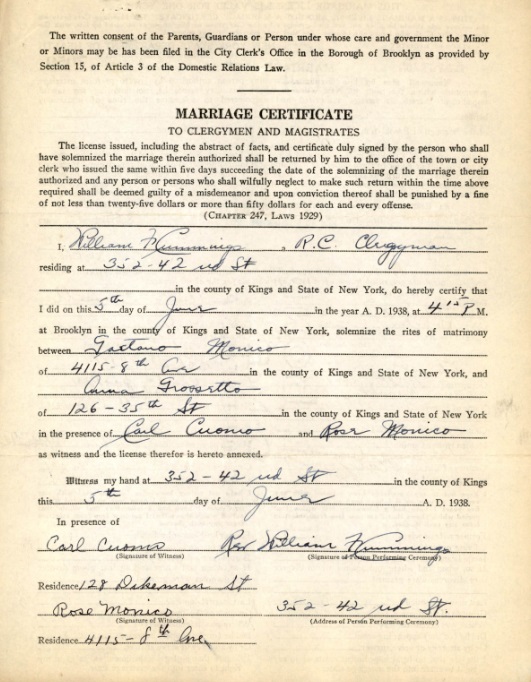 The written consent of the Parents, Guardians or Person under whose care and government the Minor
or Minors may be has been filed in the City Clerk's Office in the Borough of Brooklyn as provided by
Section 15, of Article 3 of the Domestic Relations Law.
MARRIAGE CERTIFICATE
TO CLERGYMEN AND MAGISTRATES
The license issued, including the abstract of facts, and certificate duly signed by the person who shall
have solemnized the marriage therein authorized shall be returned by him to the office of the town or city
clerk who issued the same within five days succeeding the date of the solemnizing of the marriage therein
authorized and any person or persons who shall wilfully neglect to make such return within the time above
required shall be deemed guilty of a misdemeanor and upon conviction thereof shall be punished by a fine
of not less than twenty-five dollars or more than fifty dollars for each and every offense.
(CHAPTER 247, LAWS 1929)
I, William Kummings, R.C. Clergyman
residing at 352-42 nd St
in the county of Kings and State of New York, do hereby certify that
I did on this 5th day of June in the year A. D. 1938, at 4 P M.
at Brooklyn in the county of Kings and State of New York, solemnize the rites of matrimony
between Gaetano Monico
of 4115-8th Ave in the county of Kings and State of New York, and
Anna Grossetto
of 126-35th St in the county of Kings and State of New York
in the presence of Carl Cuomo and Rose Monico
as witness and the license therefor is hereto annexed.
Witness my hand at 352-42 nd St in the county of Kings
this 5th day of June A. D. 1938.
In presence of
Carl Cuomo Rev William Kummings
(Signature of Witness) (Signature of Person Performing Ceremony)
Residence 128 Dikeman St
Rose Monico 352-42 nd St.
(Signature of Witness) (Address of Person Performing Ceremony)
Residence 4115-8th Ave.